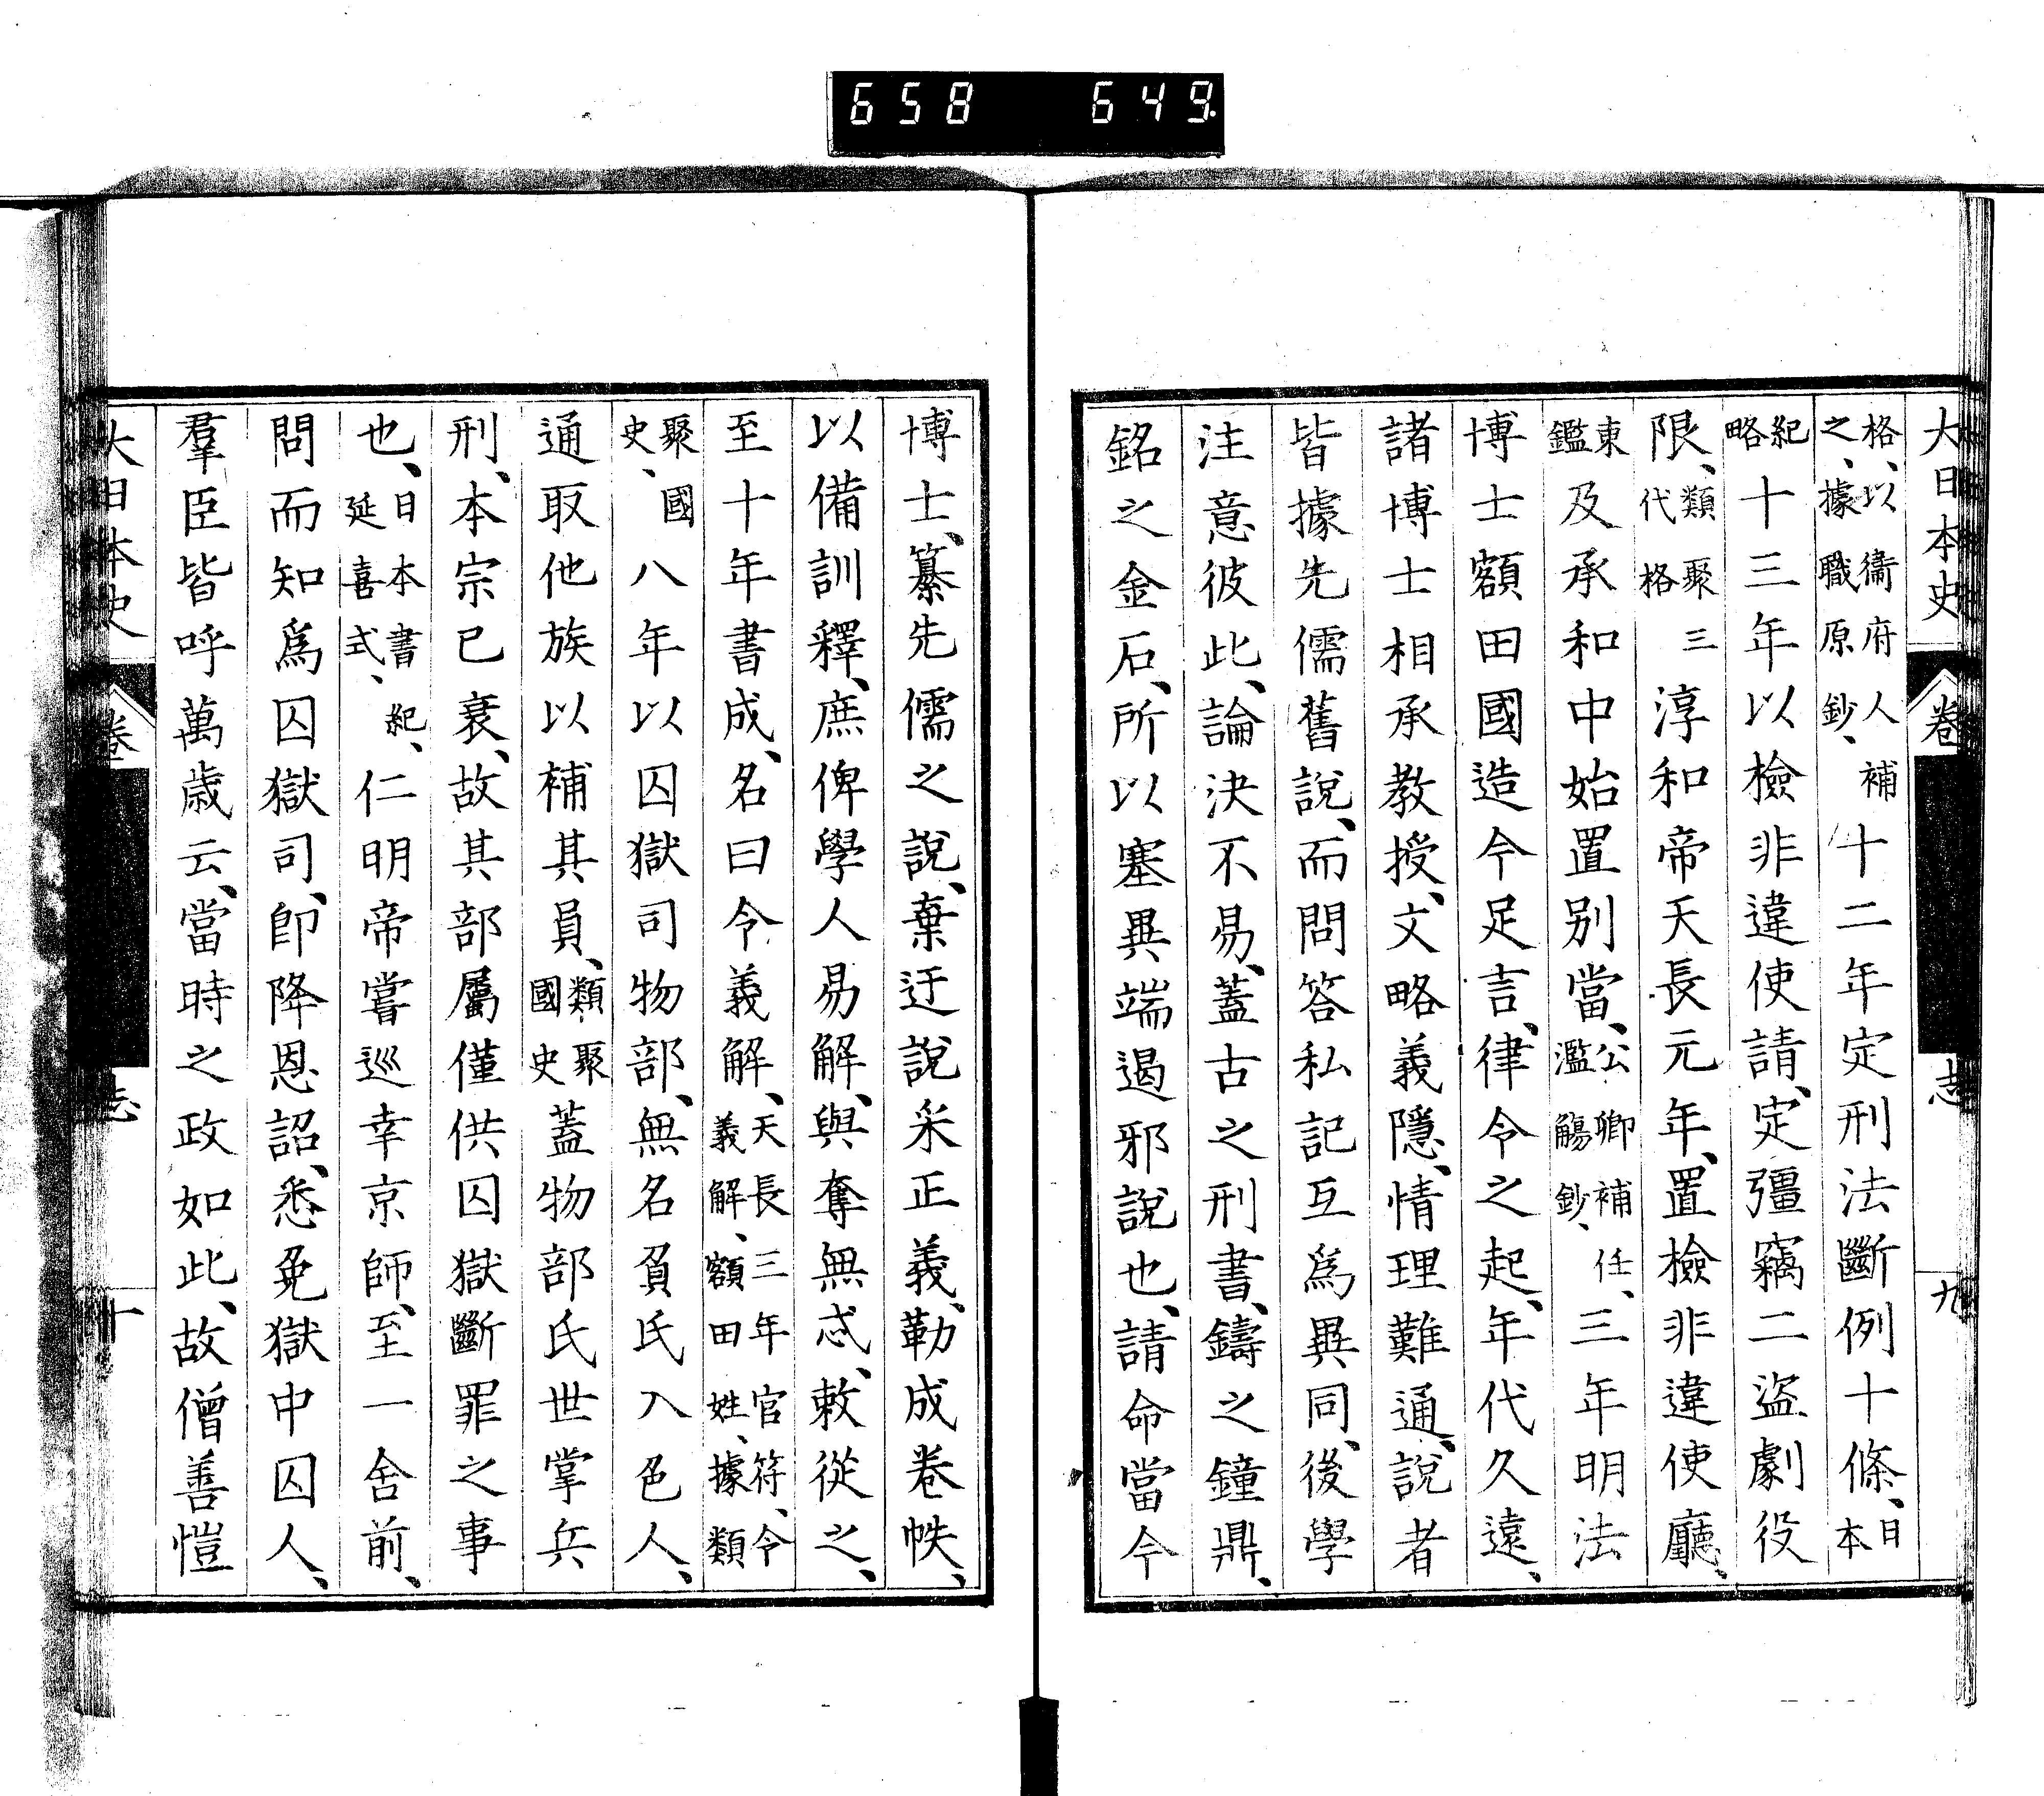 658 649
大日本史 卷 志 九
格、以衞府人補之、據職原鈔、十二年定刑法斷例十條、日本
紀略十三年以檢非違使請、定彊竊二盜劇役
限、類聚三代格淳和帝天長元年、置檢非違使廳、
東鑑及承和中始置別當、公卿補任、濫觴鈔、三年明法
博士額田國造今足言、律令之起、年代久遠、
諸博士相承教授、文略義隱、情理難通、說者
皆據先儒舊說、而問答私記互爲異同、後學
注意彼此、論決不易、蓋古之刑書、鑄之鐘鼎、
銘之金石、所以塞異端遏邪說也、請命當今
博士、纂先儒之說、棄迂說采正義、勒成卷帙、
以備訓釋、庶俾學人易解、與奪無忒、敕從之、
至十年書成、名曰令義解、天長三年官符、令義解、額田姓、據類
聚國史、八年以囚獄司物部、無名負氏入色人、
通取他族以補其員、類聚國史蓋物部氏世掌兵
刑、本宗已衰、故其部屬僅供囚獄斷罪之事
也、日本書紀、延喜式、仁明帝嘗巡幸京師、至一舍前、
問而知爲囚獄司、卽降恩詔、悉免獄中囚人、
羣臣皆呼萬歲云、當時之政如此、故僧善愷
大日本史 卷 志 十